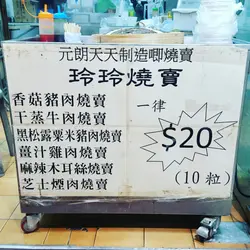 元朗天天制造唧燒賣
玲玲燒賣
香菇豬肉燒賣
干蒸牛肉燒賣
黑松露粟米豬肉燒賣
薑汁雞肉燒賣
麻辣木耳絲燒賣
芝士煙肉燒賣
一律
$20
(10粒)